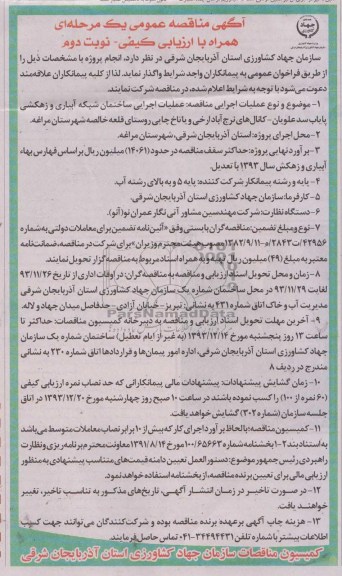 آگهی مناقصه عمومی یک مرحله‌ای
همراه با ارزیابی کیفی- نوبت دوم
سازمان جهاد کشاورزی استان آذربایجان شرقی در نظر دارد، انجام پروژه با مشخصات ذیل را
از طریق فراخوان عمومی به پیمانکاران واجد شرایط واگذار نماید، لذا از کلیه پیمانکاران علاقه‌مند
دعوت می‌شود با توجه به شرایط اعلام شده، در مناقصه شرکت نمایند.
۱- موضوع و نوع عملیات اجرایی مناقصه: عملیات اجرایی ساختمان شبکه آبیاری و زهکشی
پایاب سد علویان- کانال‌های نرج آباد ارخی و باناخ چایی روستای قلعه خالصه شهرستان مراغه.
۲- محل اجرای پروژه: استان آذربایجان شرقی، شهرستان مراغه.
۳- برآورد نهایی پروژه: حداکثر سقف مناقصه در حدود (۱۴۰۶۱) میلیون ریال بر اساس فهارس بهاء
آبیاری و زهکش سال ۱۳۹۳ با تعدیل.
۴- پایه و رشته پیمانکار شرکت کننده: پایه ۵ و به بالای رشته آب.
۵- کارفرما: سازمان جهاد کشاورزی استان آذربایجان شرقی.
۶- دستگاه نظارت: شرکت مهندسین مشاور آتی نگار عمران نو (آنو).
۷- نوع و مبلغ تضمین: مناقصه‌گران بایستی وفق «آئین‌نامه تضمین برای معاملات دولتی به شماره
۴۲۹۵۶/ت۲۸۴۳ه-۱۳۸۲/۹/۱۱ مصوب هیئت محترم وزیران» برای شرکت در مناقصه، ضمانت‌نامه
معتبر به مبلغ (۴۹۱) میلیون ریال را به همراه اسناد مربوط به مناقصه‌گزار تحویل نمایند.
۸- زمان و محل تحویل اسناد ارزیابی و مناقصه به مناقصه‌گران: در اوقات اداری از تاریخ ۹۳/۱۱/۲۶
لغایت ۹۳/۱۱/۲۹ در محل ساختمان شماره یک سازمان جهاد کشاورزی استان آذربایجان شرقی،
مدیریت آب و خاک اتاق شماره ۴۳۱ به نشانی: تبریز- خیابان آزادی- حدفاصل میدان جهاد و لاله.
۹- آخرین مهلت تحویل اسناد ارزیابی و مناقصه به دبیرخانه کمیسیون مناقصات: حداکثر تا
ساعت ۱۳ روز پنجشنبه مورخ ۱۳۹۳/۱۲/۱۴ (به غیر از ایام تعطیل) ساختمان شماره یک سازمان
جهاد کشاورزی استان آذربایجان شرقی، اداره امور پیمان‌ها و قراردادها اتاق شماره ۲۳۰ به نشانی
مندرج در ردیف ۸
۱۰- زمان گشایش پیشنهادات: پیشنهادات مالی پیمانکارانی که حد نصاب نمره ارزیابی کیفی
(۶۰ نمره از ۱۰۰) را کسب نموده باشند در ساعت ۱۰ صبح روز چهارشنبه مورخ ۱۳۹۳/۱۲/۲۰ در اتاق
جلسه سازمان (شماره ۳۰۲) گشایش خواهد یافت.
۱۱- کمیسیون مناقصه با لحاظ برآورد اجرای کار که بیش از ۱۰ برابر نصاب معاملات متوسط می‌باشد
به استناد بند ۲-۱ بخشنامه شماره ۱۰۰/۶۵۶۶۳ مورخ ۱۳۹۱/۸/۱۴ معاونت محترم برنامه‌ریزی و نظارت
راهبردی رئیس جمهور موضوع: دستورالعمل تعیین دامنه قیمت‌های متناسب پیشنهادی به منظور
ارزیابی مالی برای تعیین برنده مناقصه، از بخشنامه استفاده خواهد نمود.
۱۲- در صورت تاخیر در زمان انتشار آگهی، تاریخ‌های مذکور به تناسب تاخیر، تغییر
خواهند یافت.
۱۳- هزینه چاپ آگهی بر عهده برنده مناقصه بوده و شرکت‌کنندگان می‌توانند جهت کسب
اطلاعات بیشتر با شماره تلفن ۳۴۴۹۴۴۳۱-۰۴۱ تماس حاصل فرمایند.
کمیسیون مناقصات سازمان جهاد کشاورزی استان آذربایجان شرقی